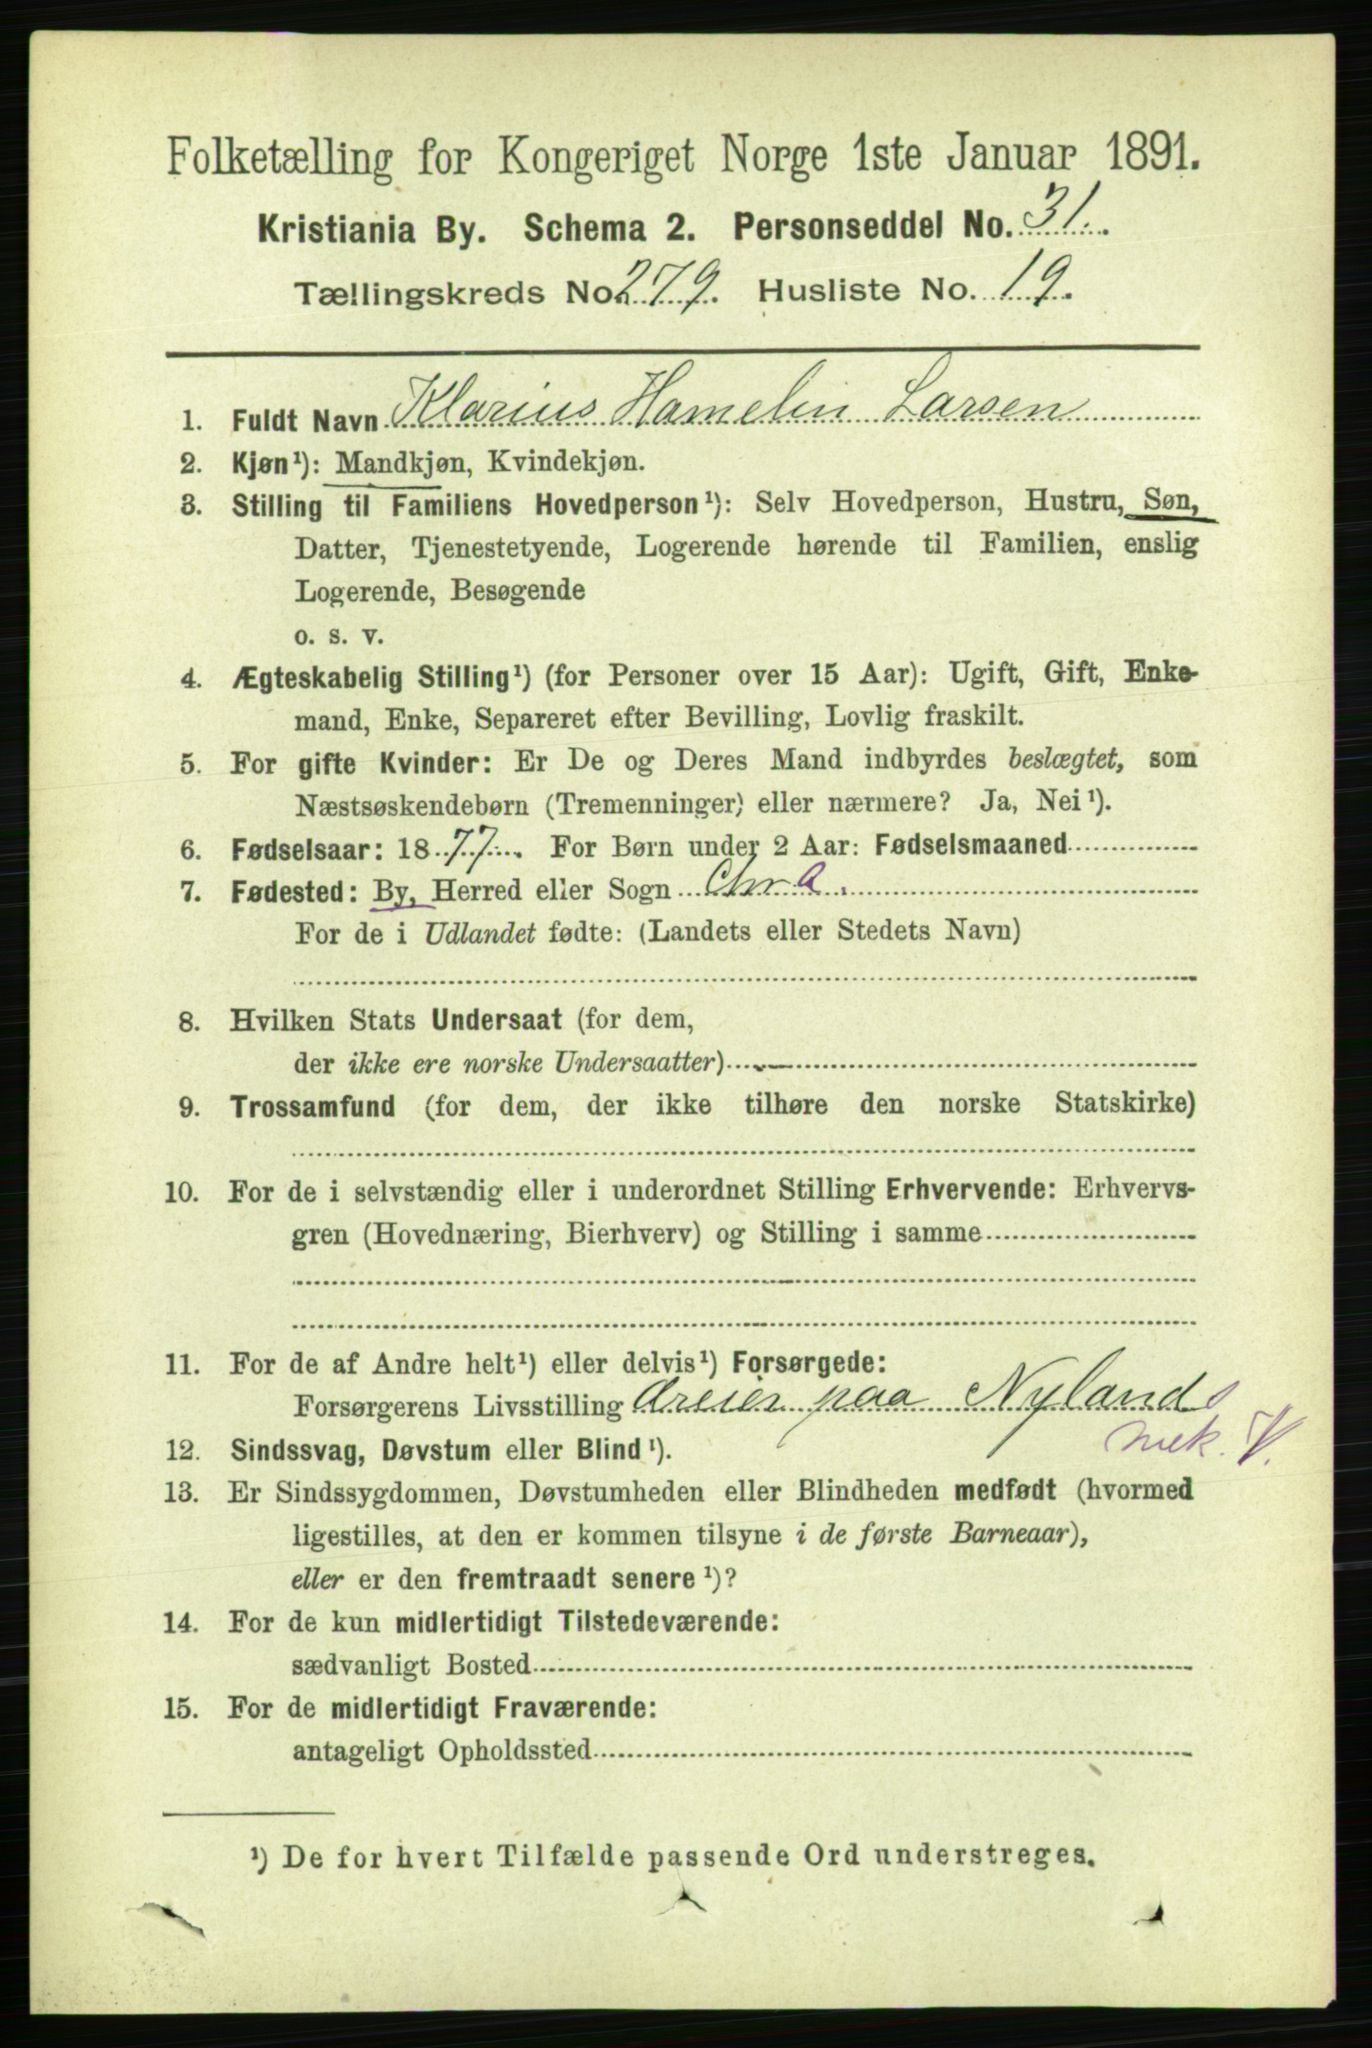 Folketælling for Kongeriget Norge 1ste Januar 1891.
Kristiania By. Schema 2. Personseddel No. 31.
Tællingskreds No. 279. Husliste No. 19.
1. Fuldt Navn Klarius Hamelin Larsen
2. Kjøn¹): Mandkjøn, Kvindekjøn.
3. Stilling til Familiens Hovedperson¹): Selv Hovedperson, Hustru, Søn,
Datter, Tjenestetyende, Logerende hørende til Familien, enslig
Logerende, Besøgende
o. s. v.
4. Ægteskabelig Stilling¹) (for Personer over 15 Aar): Ugift, Gift, Enke-
mand, Enke, Separeret efter Bevilling, Lovlig fraskilt.
5. For gifte Kvinder: Er De og Deres Mand indbyrdes beslægtet, som
Næstsøskendebørn (Tremenninger) eller nærmere? Ja, Nei¹).
6. Fødselsaar: 1877. For Børn under 2 Aar: Fødselsmaaned
7. Fødested: By, Herred eller Sogn Chra.
For de i Udlandet fødte: (Landets eller Stedets Navn)
8. Hvilken Stats Undersaat (for dem,
der ikke ere norske Undersaatter)
9. Trossamfund (for dem, der ikke tilhøre den norske Statskirke)
10. For de i selvstændig eller i underordnet Stilling Erhvervende: Erhvervs-
gren (Hovednæring, Bierhverv) og Stilling i samme
11. For de af Andre helt¹) eller delvis¹) Forsørgede:
Forsørgerens Livsstilling Dreier paa Nylands
mek. V.
12. Sindssvag, Døvstum eller Blind¹).
13. Er Sindssygdommen, Døvstumheden eller Blindheden medfødt (hvormed
ligestilles, at den er kommen tilsyne i de første Barneaar),
eller er den fremtraadt senere¹)?
14. For de kun midlertidigt Tilstedeværende:
sædvanligt Bosted
15. For de midlertidigt Fraværende:
antageligt Opholdssted
¹) De for hvert Tilfælde passende Ord understreges.